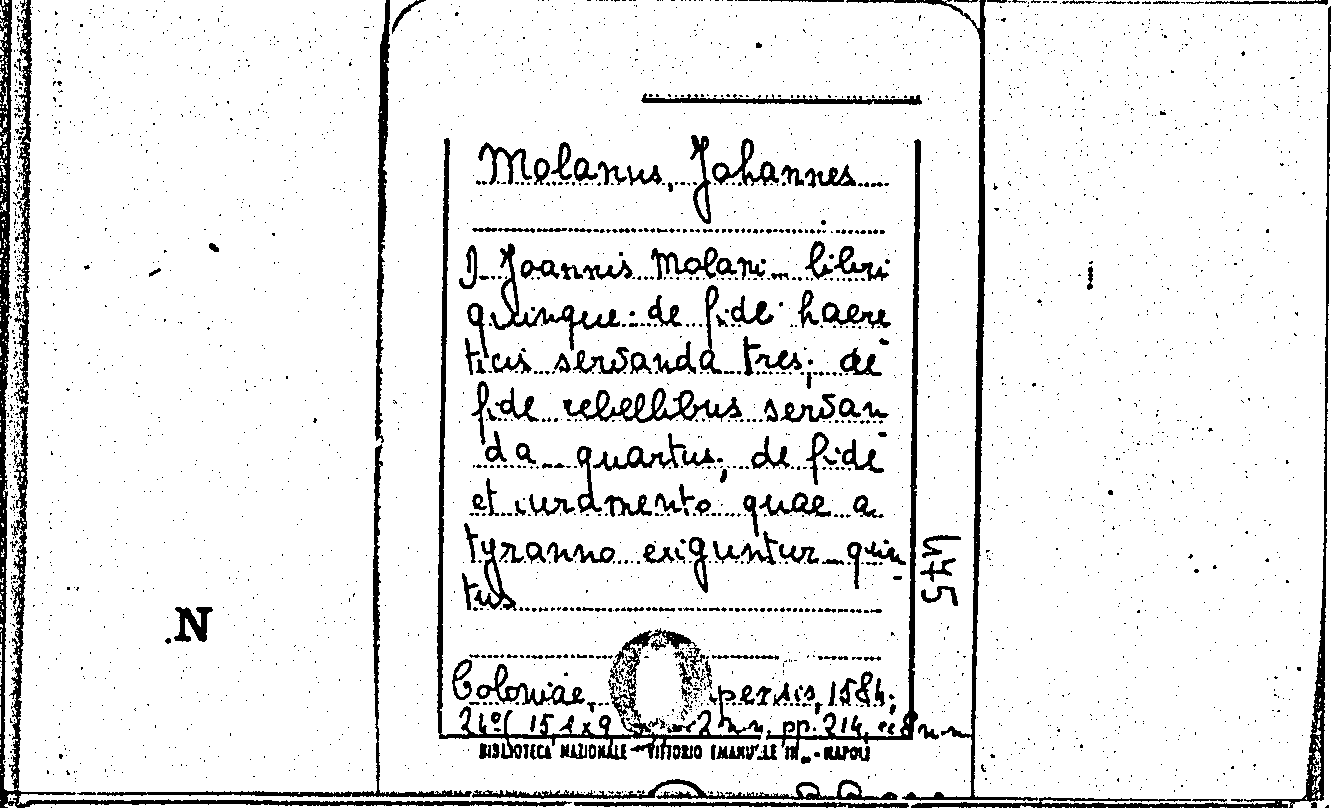 Molanus, Johannes
J. Joannis Molani libri
quinque: de fide haere
ticis servanda tres; de
fide rebellibus servan
da quartus; de fide
et iuramento quae a
tyranno exiguntur quin
tus
475
.N
Coloniae, persis, 1584;
24º( 15,1x9 2 n.n, pp. 214, cc 8 n.n
BIBLIOTECA NAZIONALE - VITTORIO EMANUELE III - NAPOLI